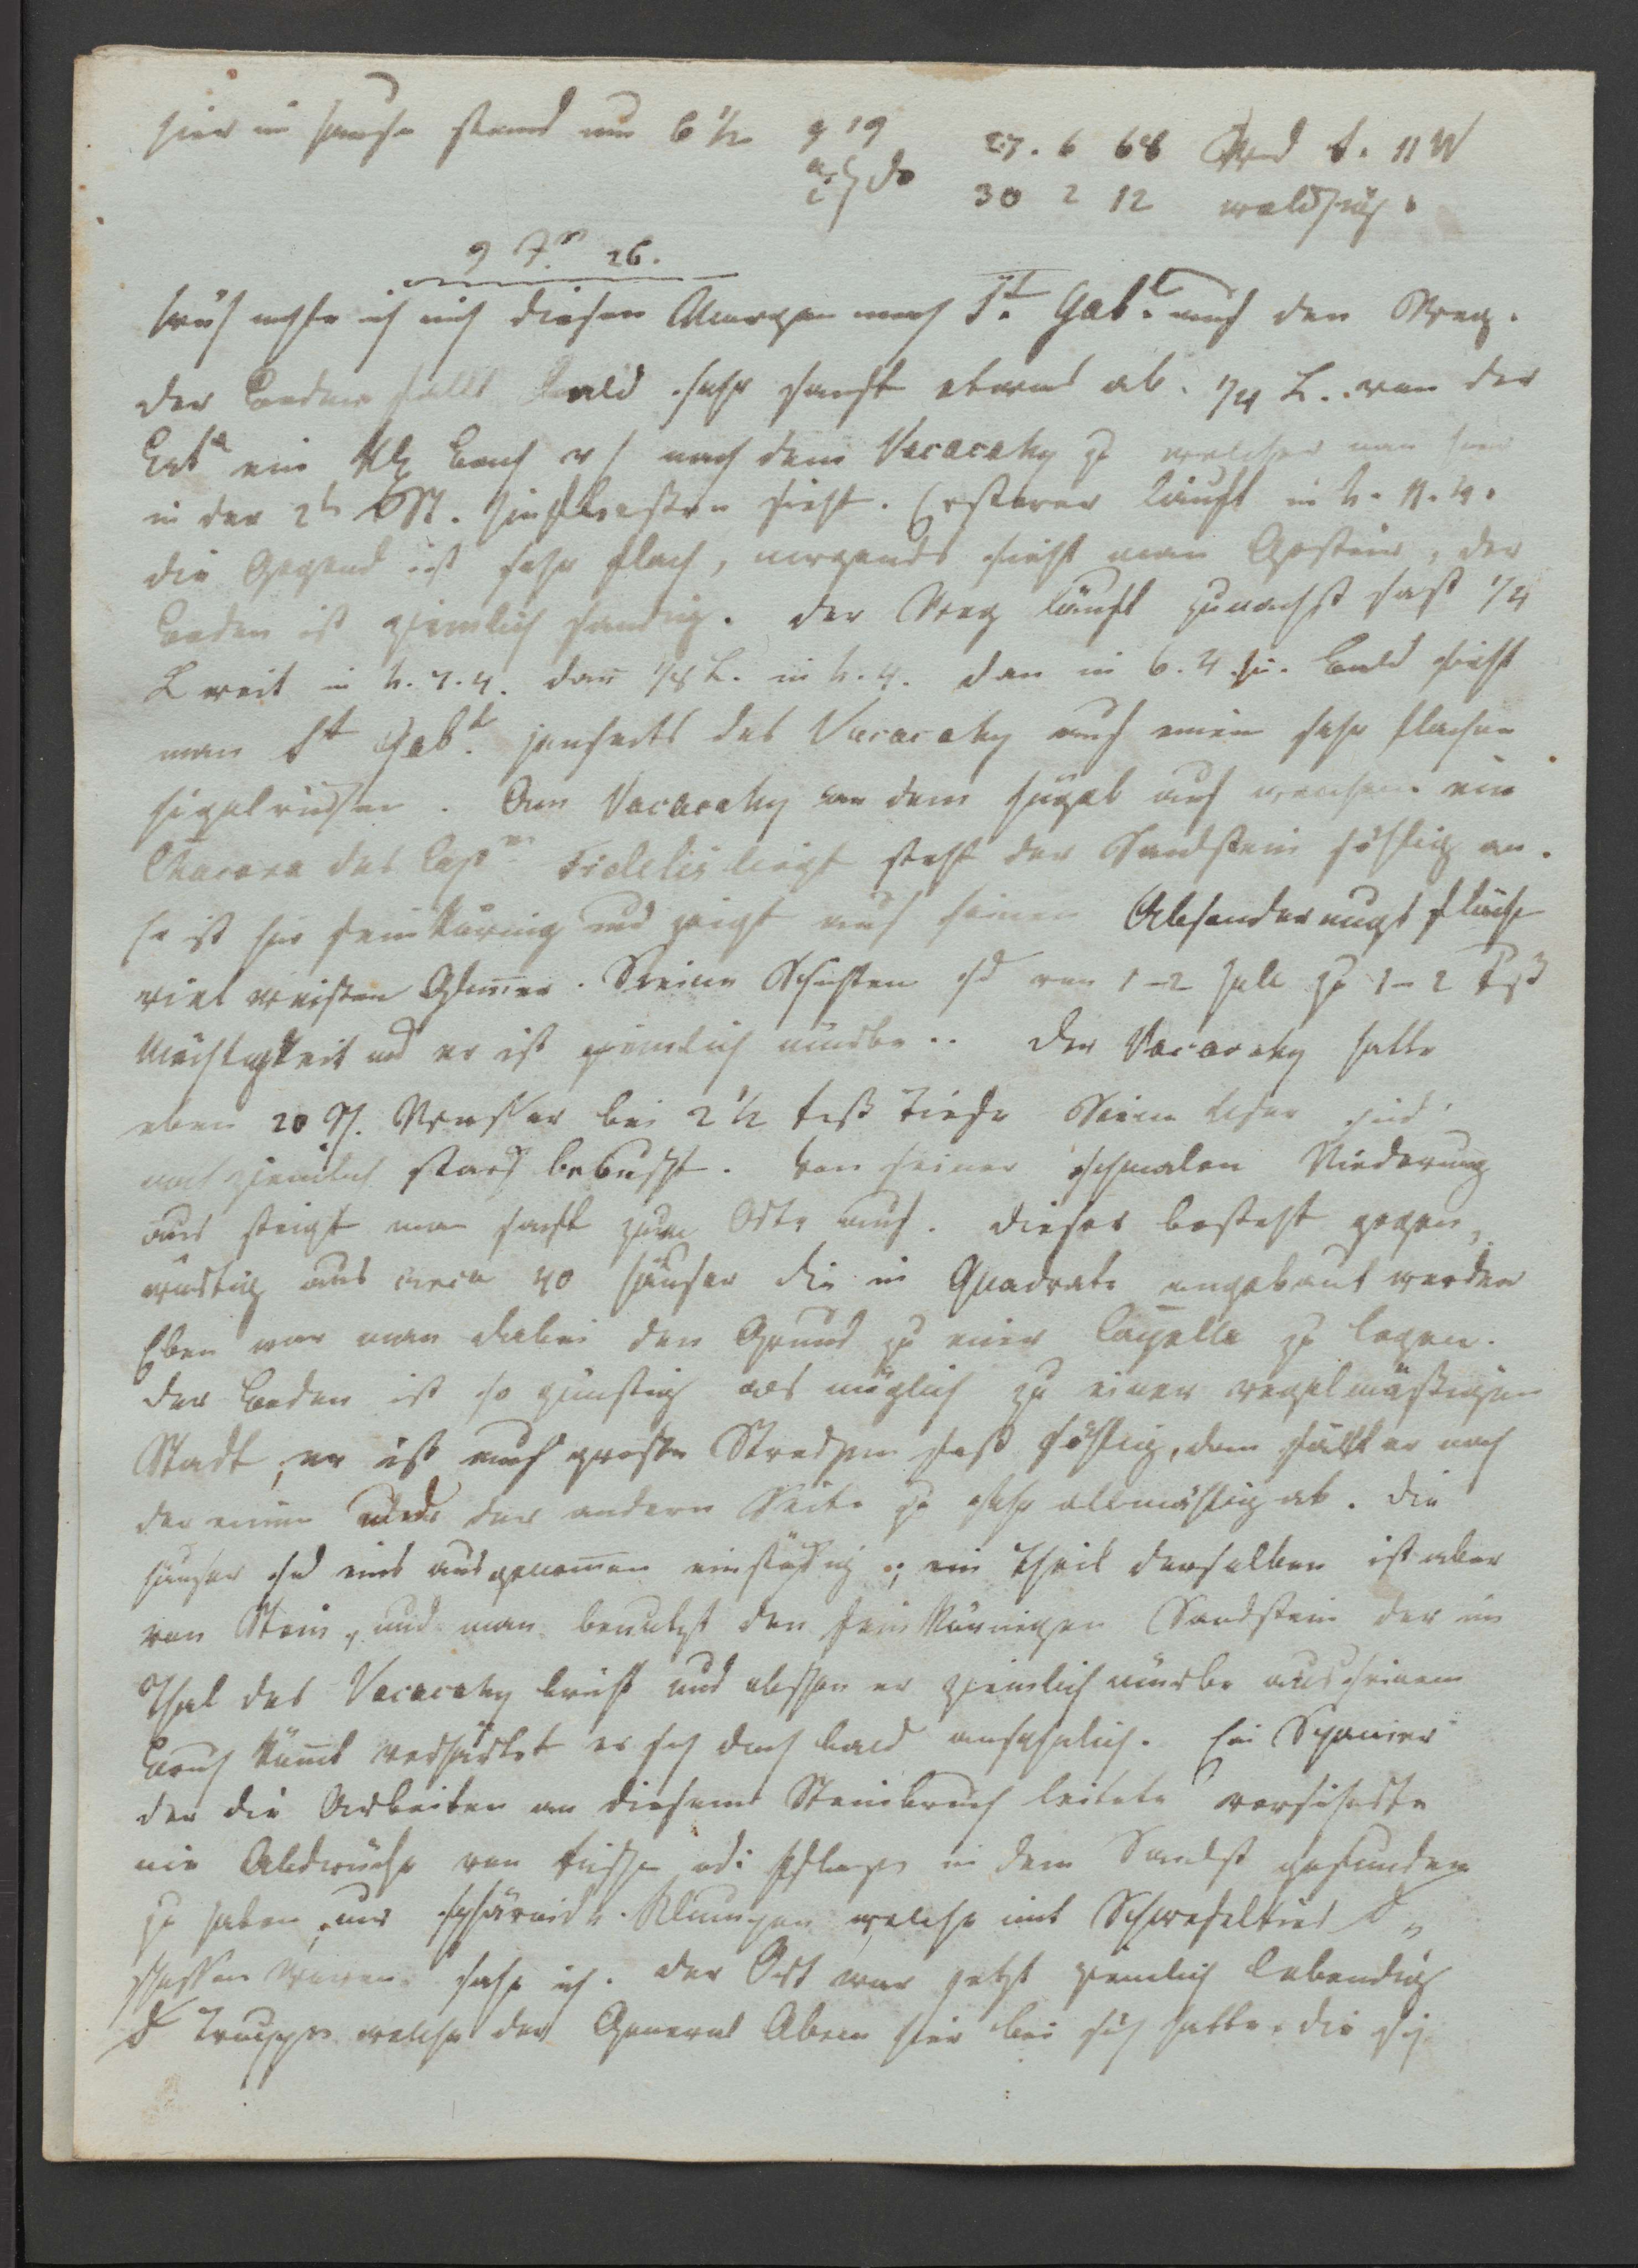 hier im Hause stand um 6 ½ ♀ 19 27. 6 68 Wd S. 11 W
a. ♄ do 30 2 12 
9 7br 26.
früh machte ich mich diesen Morgen nach St Gabl auf den Weg.
der Boden fällt bald sehr sanft etwas ab. 1/4 L. von der
Estca ein Bach nach dem Vacacahy zu welchen man hier
in der 2ten St. hinfliessen sieht. Ersterer läuft in h. 11. 4.
die Gegend ist sehr flach, nirgends sieht man Gestein, der
Boden ist ziemlich sandig. der Weg läuft zunächst fast 1/4
L weit in h. 7. 4. dañ 1/8 L. in h. 4. dan in 6. 4. hin. bald sieht
man St Gabl. jenseits des Vacacahy auf einem sehr flachen
Hügelrücken. Am Vacacahy an dem Hügel auf welchem ein
Chacara des Capm Fidelis liegt steht der Sandstein söhlig an.
Er ist hier feinkörnig und zeigt auf seinen Absonderungsfläche
viel weissen Glim̄er. Seine Schichten sd von 1–2 Zoll zu 1–2 Fuß
Mächtigkeit und er ist ziemlich mürbe.. Der Vacacahy hatte
eben 20 S. Wasser bei 2 ½ Fuß Tiefe Seine Ufer sind
noch ziemlich stark bebuscht. Von seiner schmalen Niederung
aus steigt man sanft zum Orte auf. Dieser besteht gegen„
wärtig aus circa 40 Häuser die in Quadrate angebaut werden
Eben war man dabei den Grund zu einer Capelle zu legen.
Der Boden ist so günstig als möglich zu einer regelmäßigen
Stadt, er ist auf grosse Strecken fast söhlig, dann fällt er nach
der einen oder der andern Seite zu sehr allmählig ab. Die
Häuser sd eins ausgenom̄en einstöckig; ein Theil derselben ist aber
von Stein, und man benutzt den feinkörnigen Sandstein der im
Thal des Vacacahy bricht und obschon er ziemlich mürbe aus seinem
Bruch köm̄t verhärtet er sich doch bald ansehnlich. Ein Spanier
der die Arbeiten an diesem Steinbruch leitete versicherte
nie Abdrücke von Fische od: Pflanzen in dem Sandst gefunden
zu haben, nur sphäroid. welche mit Schwefelkies
waren sah ich. Der Ort war jetzt ziemlich lebendig
d Truppen welche der General Abreu hier bei sich hatte, die sich